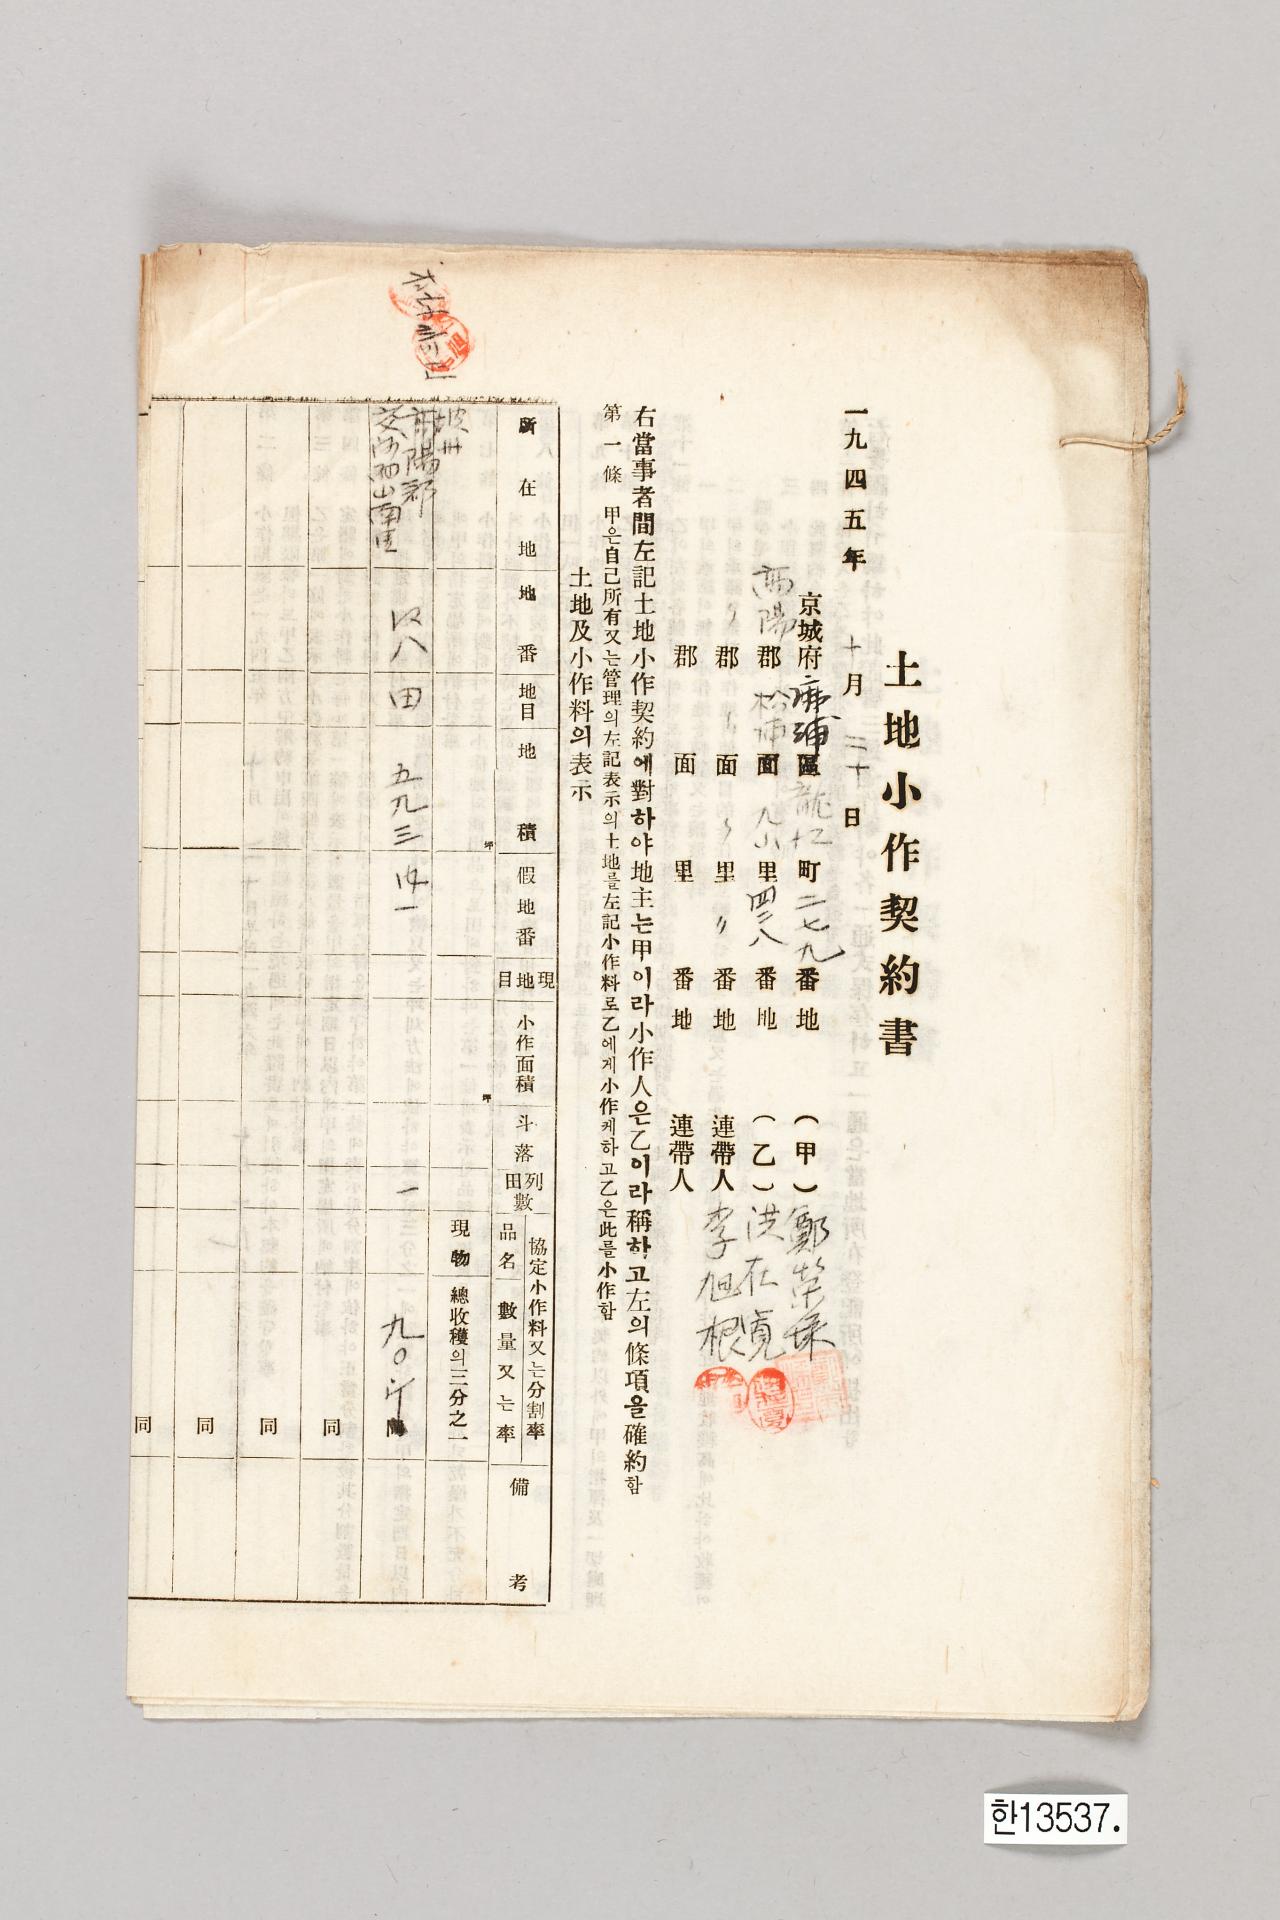 土地小作契約書
一九四五年 十月 二十日
京城府 麻浦區 龍江町 二七九番地 (甲) 鄭
高陽郡 松浦面 九山里 四二八番地 (乙) 洪在
郡 〃 面 〃 里 〃 番地 連帶人 李旭根
郡 面 里 番地 連帶人
右當事者間左記土地小作契約에對하야地主는甲이라小作人은乙이라稱하고左의條項을確約함
第一條 甲은自己所有又는管理의左記表示의土地를左記小作料로乙에게小作케하고乙은此를小作함
土地及小作料의表示
所在地 地番 地目 地積 假地番 現地目 小作面積 斗落 列田數 協定小作料又는分割率 品名 數量又는率 備考
坪 坪 現物 總收穫의三分之一
坡州
高陽郡
交河面山南里 八 田 五九三 一 一 九〇斤
同
同
同
同
한13537.